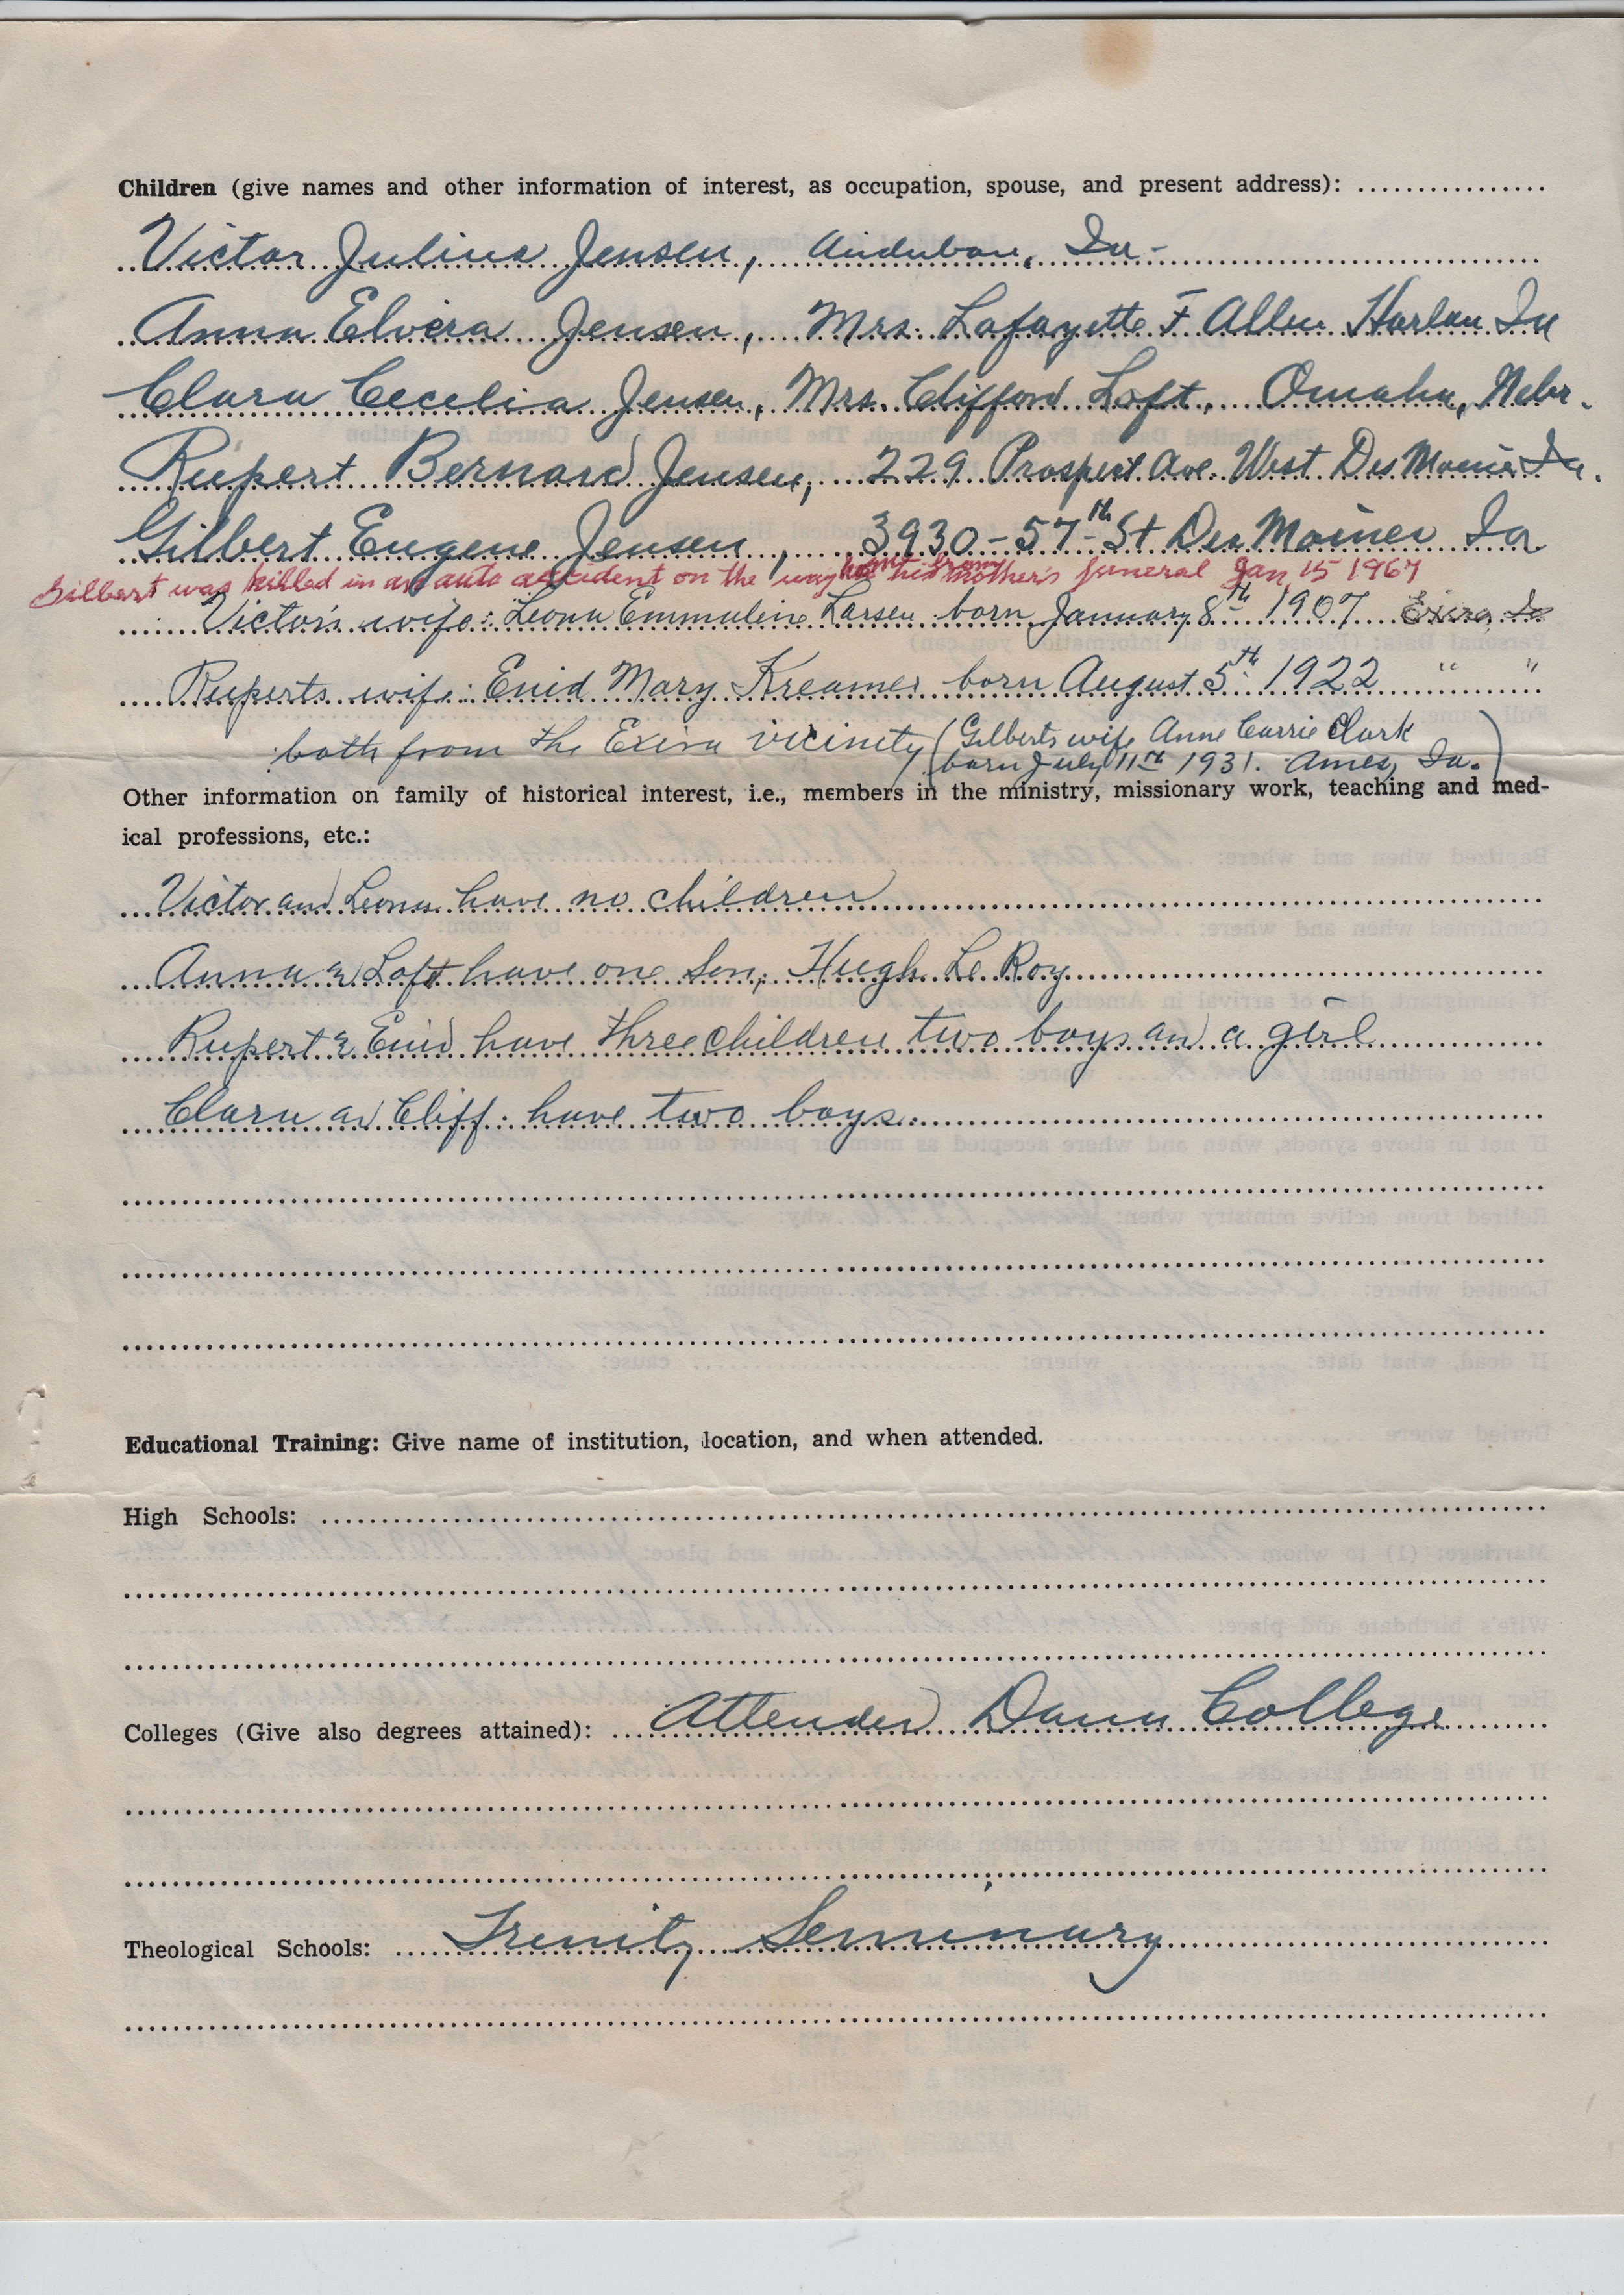 Children (give names and other information of interest, as occupation, spouse, and present address): ................
Victor Julius Jensen, Audubon, Ia-
Anna Elvera Jensen, Mrs. Lafayette F Allen Harlan Ia
Clara Cecelia Jensen, Mrs. Clifford Loft, Omaha, Nebr.
Rupert Bernard Jensen, 229 Prospect Ave. West Des Moines Ia.
Gilbert Eugene Jensen, 3930-57th St Des Moines Ia.
Gilbert was killed in an auto accident on the way home from his mother's funeral Jan 15 1967
Victor's wife: Leona Emmaline Larsen born January 8th 1907 Exira Ia
Ruperts wife: Enid Mary Kreamer born August 5th 1922 " "
both from the Exira vicinity (Gilberts wife Anne Carrie Clark
born July 11th 1931. Ames, Ia.)
Other information on family of historical interest, i.e., members in the ministry, missionary work, teaching and med-
ical professions, etc.:
Victor and Leona have no children
Anna & Loft have one Son, Hugh Le Roy
Rupert & Enid have three children two boys and a girl
Clara and Cliff. have two boys.
Educational Training: Give name of institution, location, and when attended.
High Schools:
Colleges (Give also degrees attained): Attended Dana College
Theological Schools: Trinity Seminary